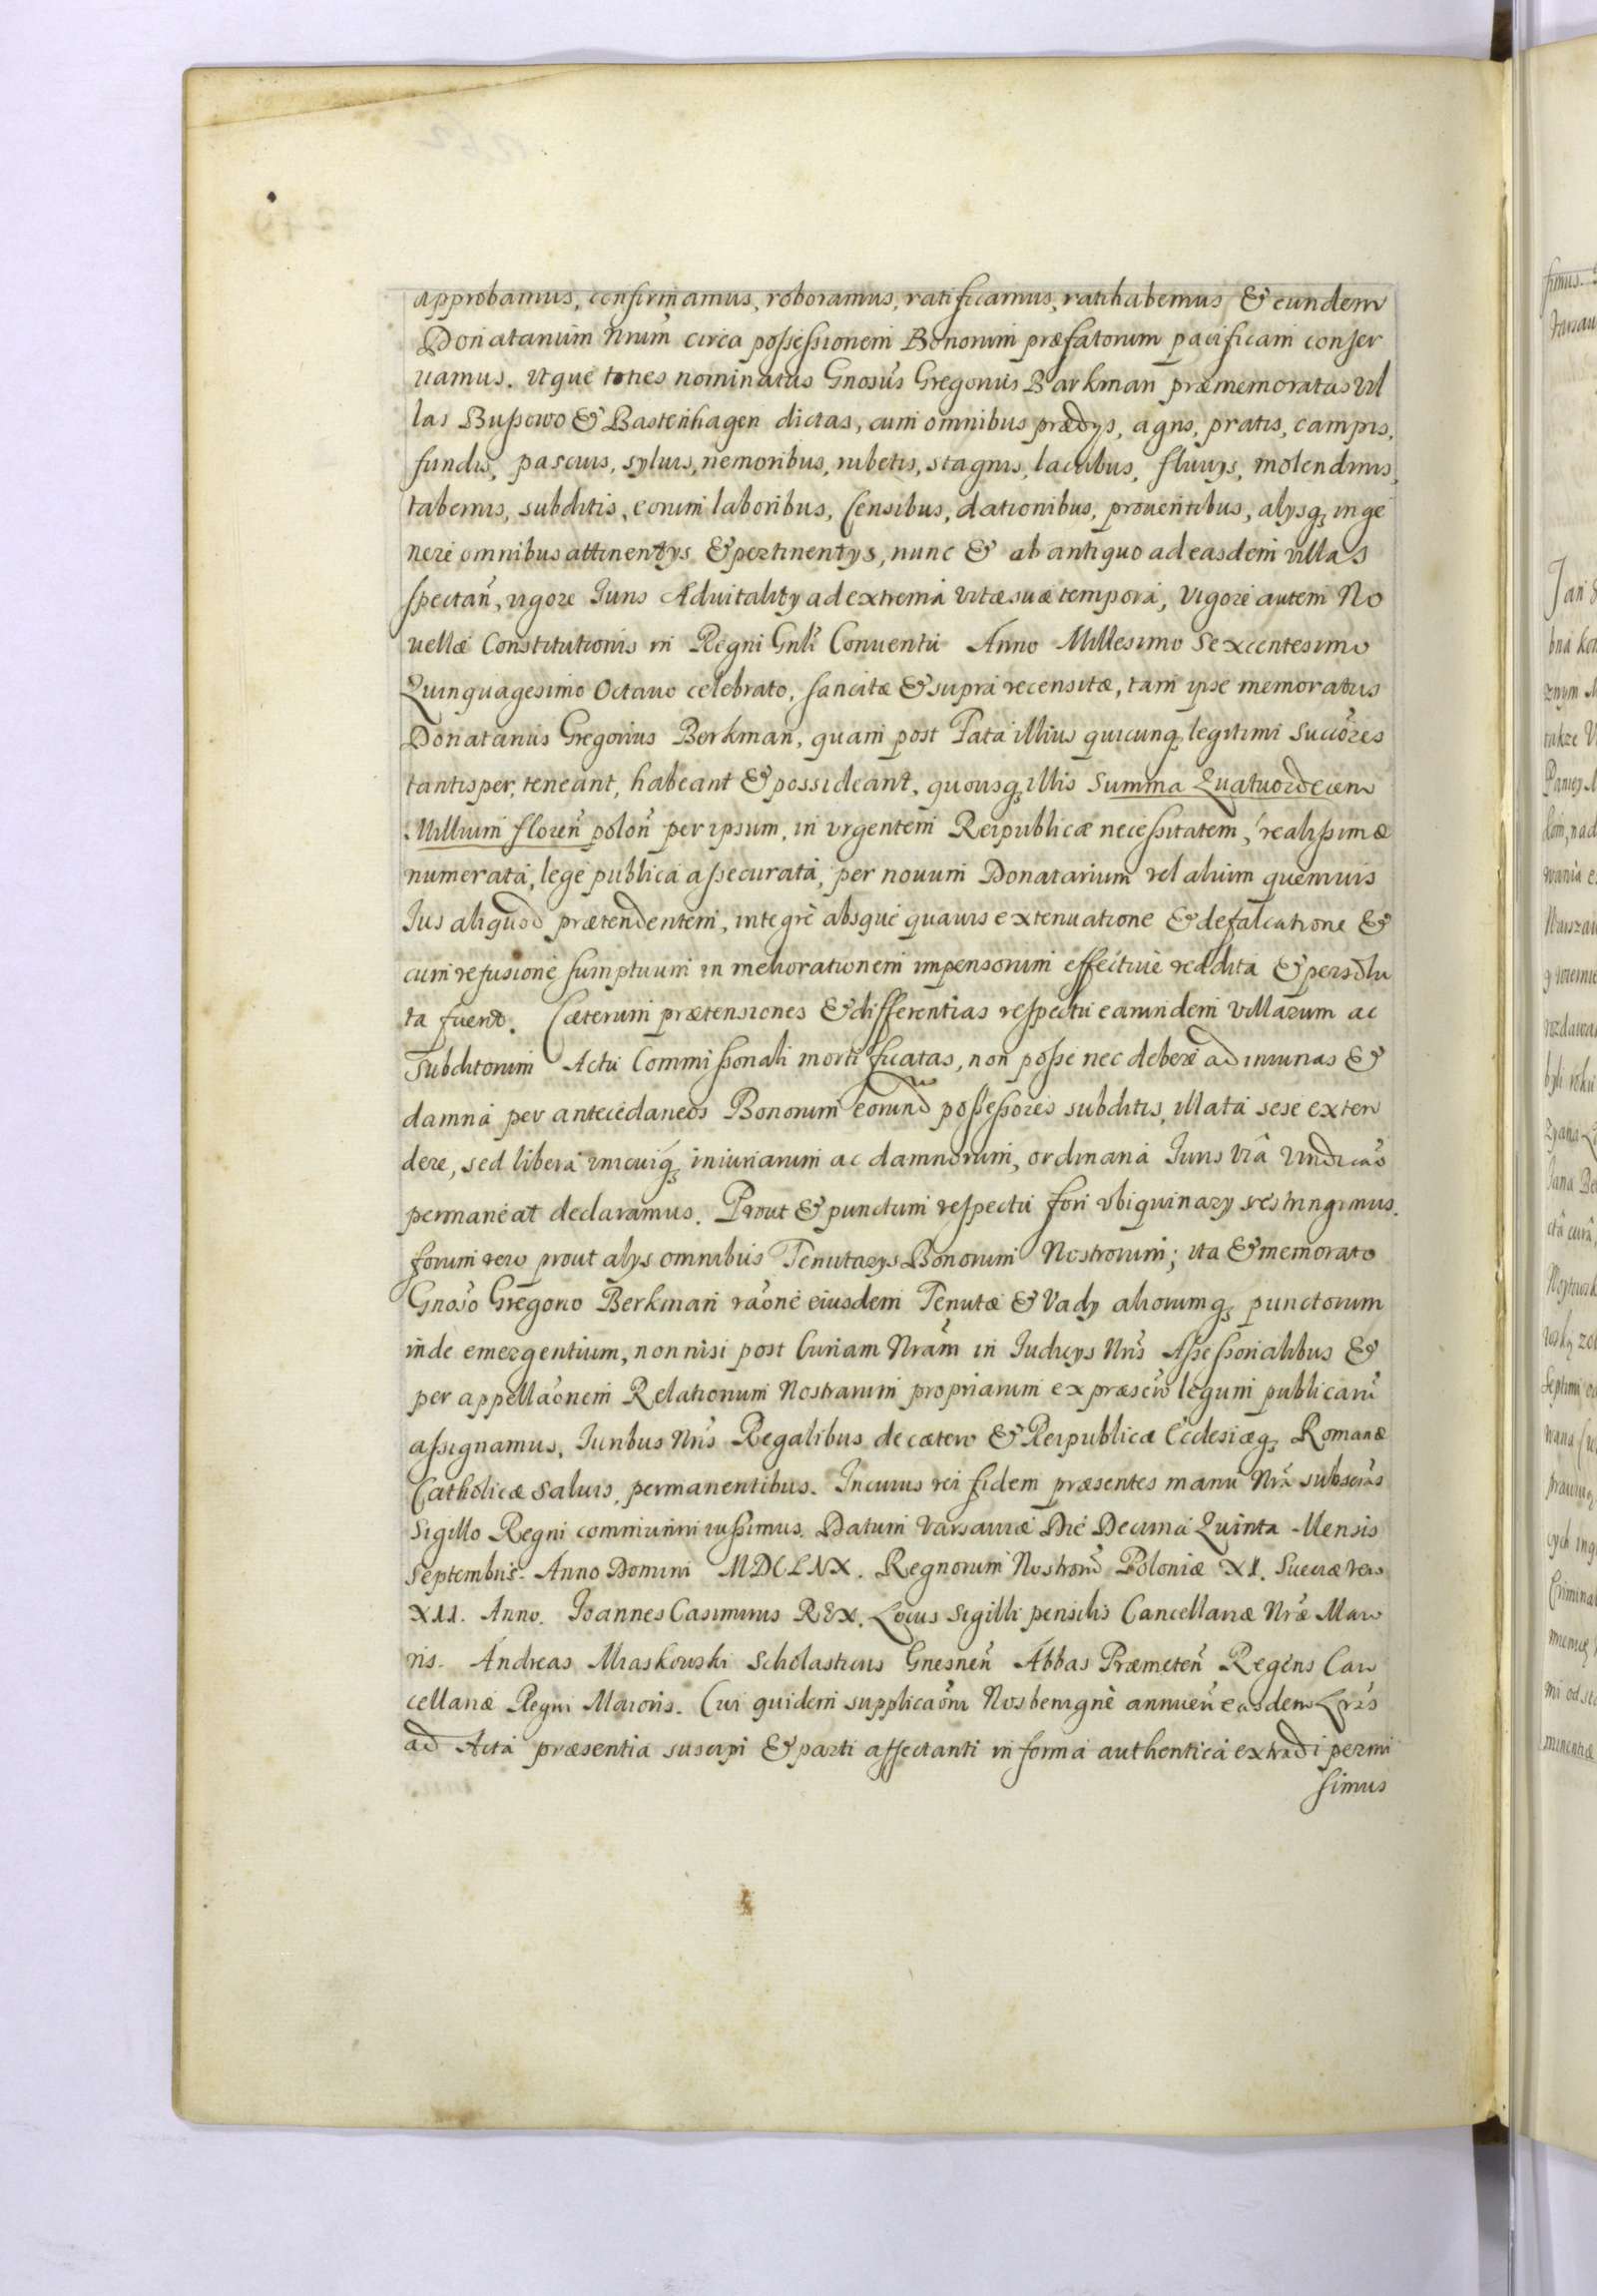 approbamus, confirmamus, roboramus, ratificamus, ratihabemus & eundem
Donatarium Nrum circa possessionem Bonorum præfatorum pacificam conser
uamus. Vtque toties nominatus Gnosus Gregorius Barkman præmemoratas Vil
las Bussowo & Bastenhagen dictas, cum omnibus prædijs, agris, pratis, campis,
fundis, pascuis, syluis, nemoribus, rubetis, stagnis, lacubus, fluuijs, molendinis,
tabernis, subditis, eorum laboribus, Censibus, dationibus, prouentibus, alijsq; in ge
nere omnibus attinentijs & pertinentijs, nunc & ab antiquo ad easdem villas
spectan, vigore Iuris Aduitalitij ad extrema vitæ suæ tempora, Vigore autem No
uellæ Constitutionis in Regni Gnli Conuentu Anno Millesimo Sexcentesimo
Quinquagesimo Octauo celebrato, sancitæ & supra recensitæ, tam ipse memoratus
Donatarius Gregorius Berkman, quam post Fata illius quicunq; legitimi Succores
tantisper, teneant, habeant & possideant, quousq; illis Summa Quatuordecim
Millium floren polon per ipsum, in vrgentem Reipublicæ necessitatem, realissimæ
numerata, lege publica assecurata, per nouum Donatarium vel alium quemuis
Ius aliquod prætendentem, integrè absque quauis extenuatione & defalcatione &
cum refusione sumptuum in meliorationem impensorum effectiue reddita & persolu
ta fuerit. Cæterum prætensiones & differentias respectu earundem Villarum ac
Subditorum Actu Commissionali mortificatas, non posse nec debere ad iniurias &
damna per antecedaneos Bonorum eorund possessores subditis, illata sese exten
dere, sed libera vnicuiq; iniuriarum ac damnorum, ordinaria Iuris Viâ Vindicao
permaneat declaramus. Prout & punctum respectu fori vbiquinarij restringimus.
forum vero prout alijs omnibus Tenutarijs Bonorum Nostrorum; ita & memorato
Gnoso Gregorio Berkman raone eiusdem Tenutæ & Vadij aliorumq; punctorum
inde emergentium, non nisi post Curiam Nram in Iudicijs Nris Assessorialibus &
per appellaonem Relationum Nostrarum propriarum ex præscro legum publicaru
assignamus. Iuribus Nris Regalibus de cætero & Reipublicæ Ecclesiæq; Romanæ
Catholicæ saluis, permanentibus. In cuius rei fidem præsentes manu Nra subscras
Sigillo Regni communiri iussimus. Datum Varsauiæ Die Decima Quinta Mensis
Septembris. Anno Domini MDCLNX. Regnorum Nostroru Poloniæ XI. Sueciæ vero
XII. Anno. Ioannes Casimirus REX. Locus Sigilli pensilis Cancellariæ Nræ Maio
ris. Andreas Miaskowski Scholasticus Gnesnen Abbas Præmeten Regens Can
cellariæ Regni Maioris. Cui quidem supplicaoni Nos benignè annuen easdem Lras
ad Acta præsentia suscipi & parti affectanti in forma authentica extradi permi
simus